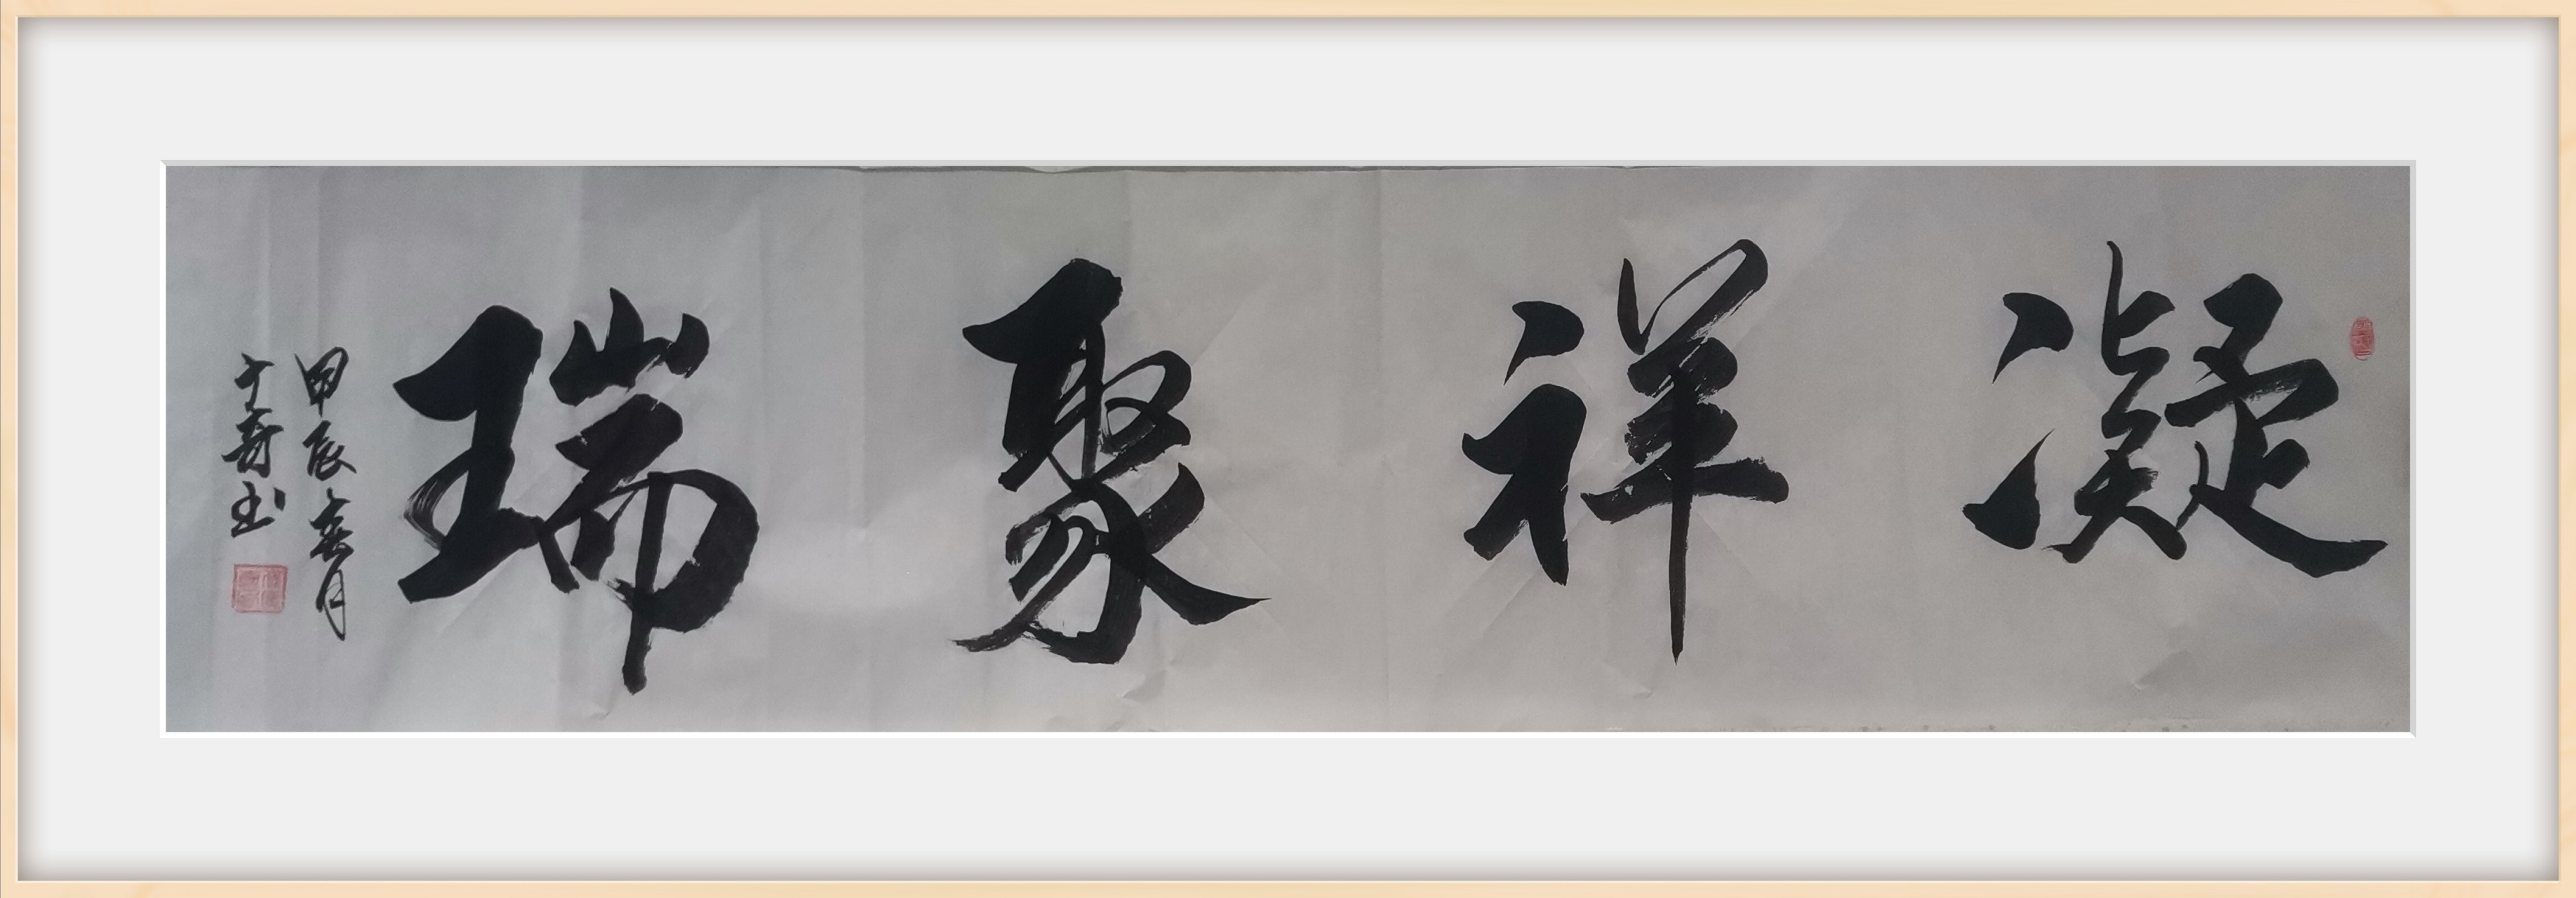 凝祥聚瑞
甲辰亥月
于奇书